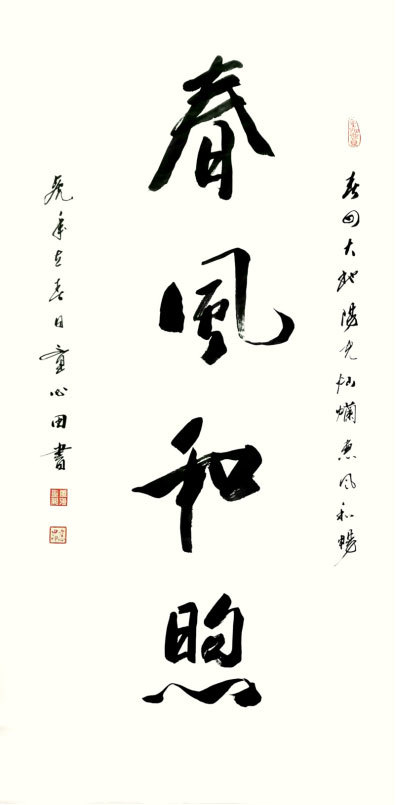 春回大地陽光灿爛惠风和暢
春風和煦
虎年立春日童心田書